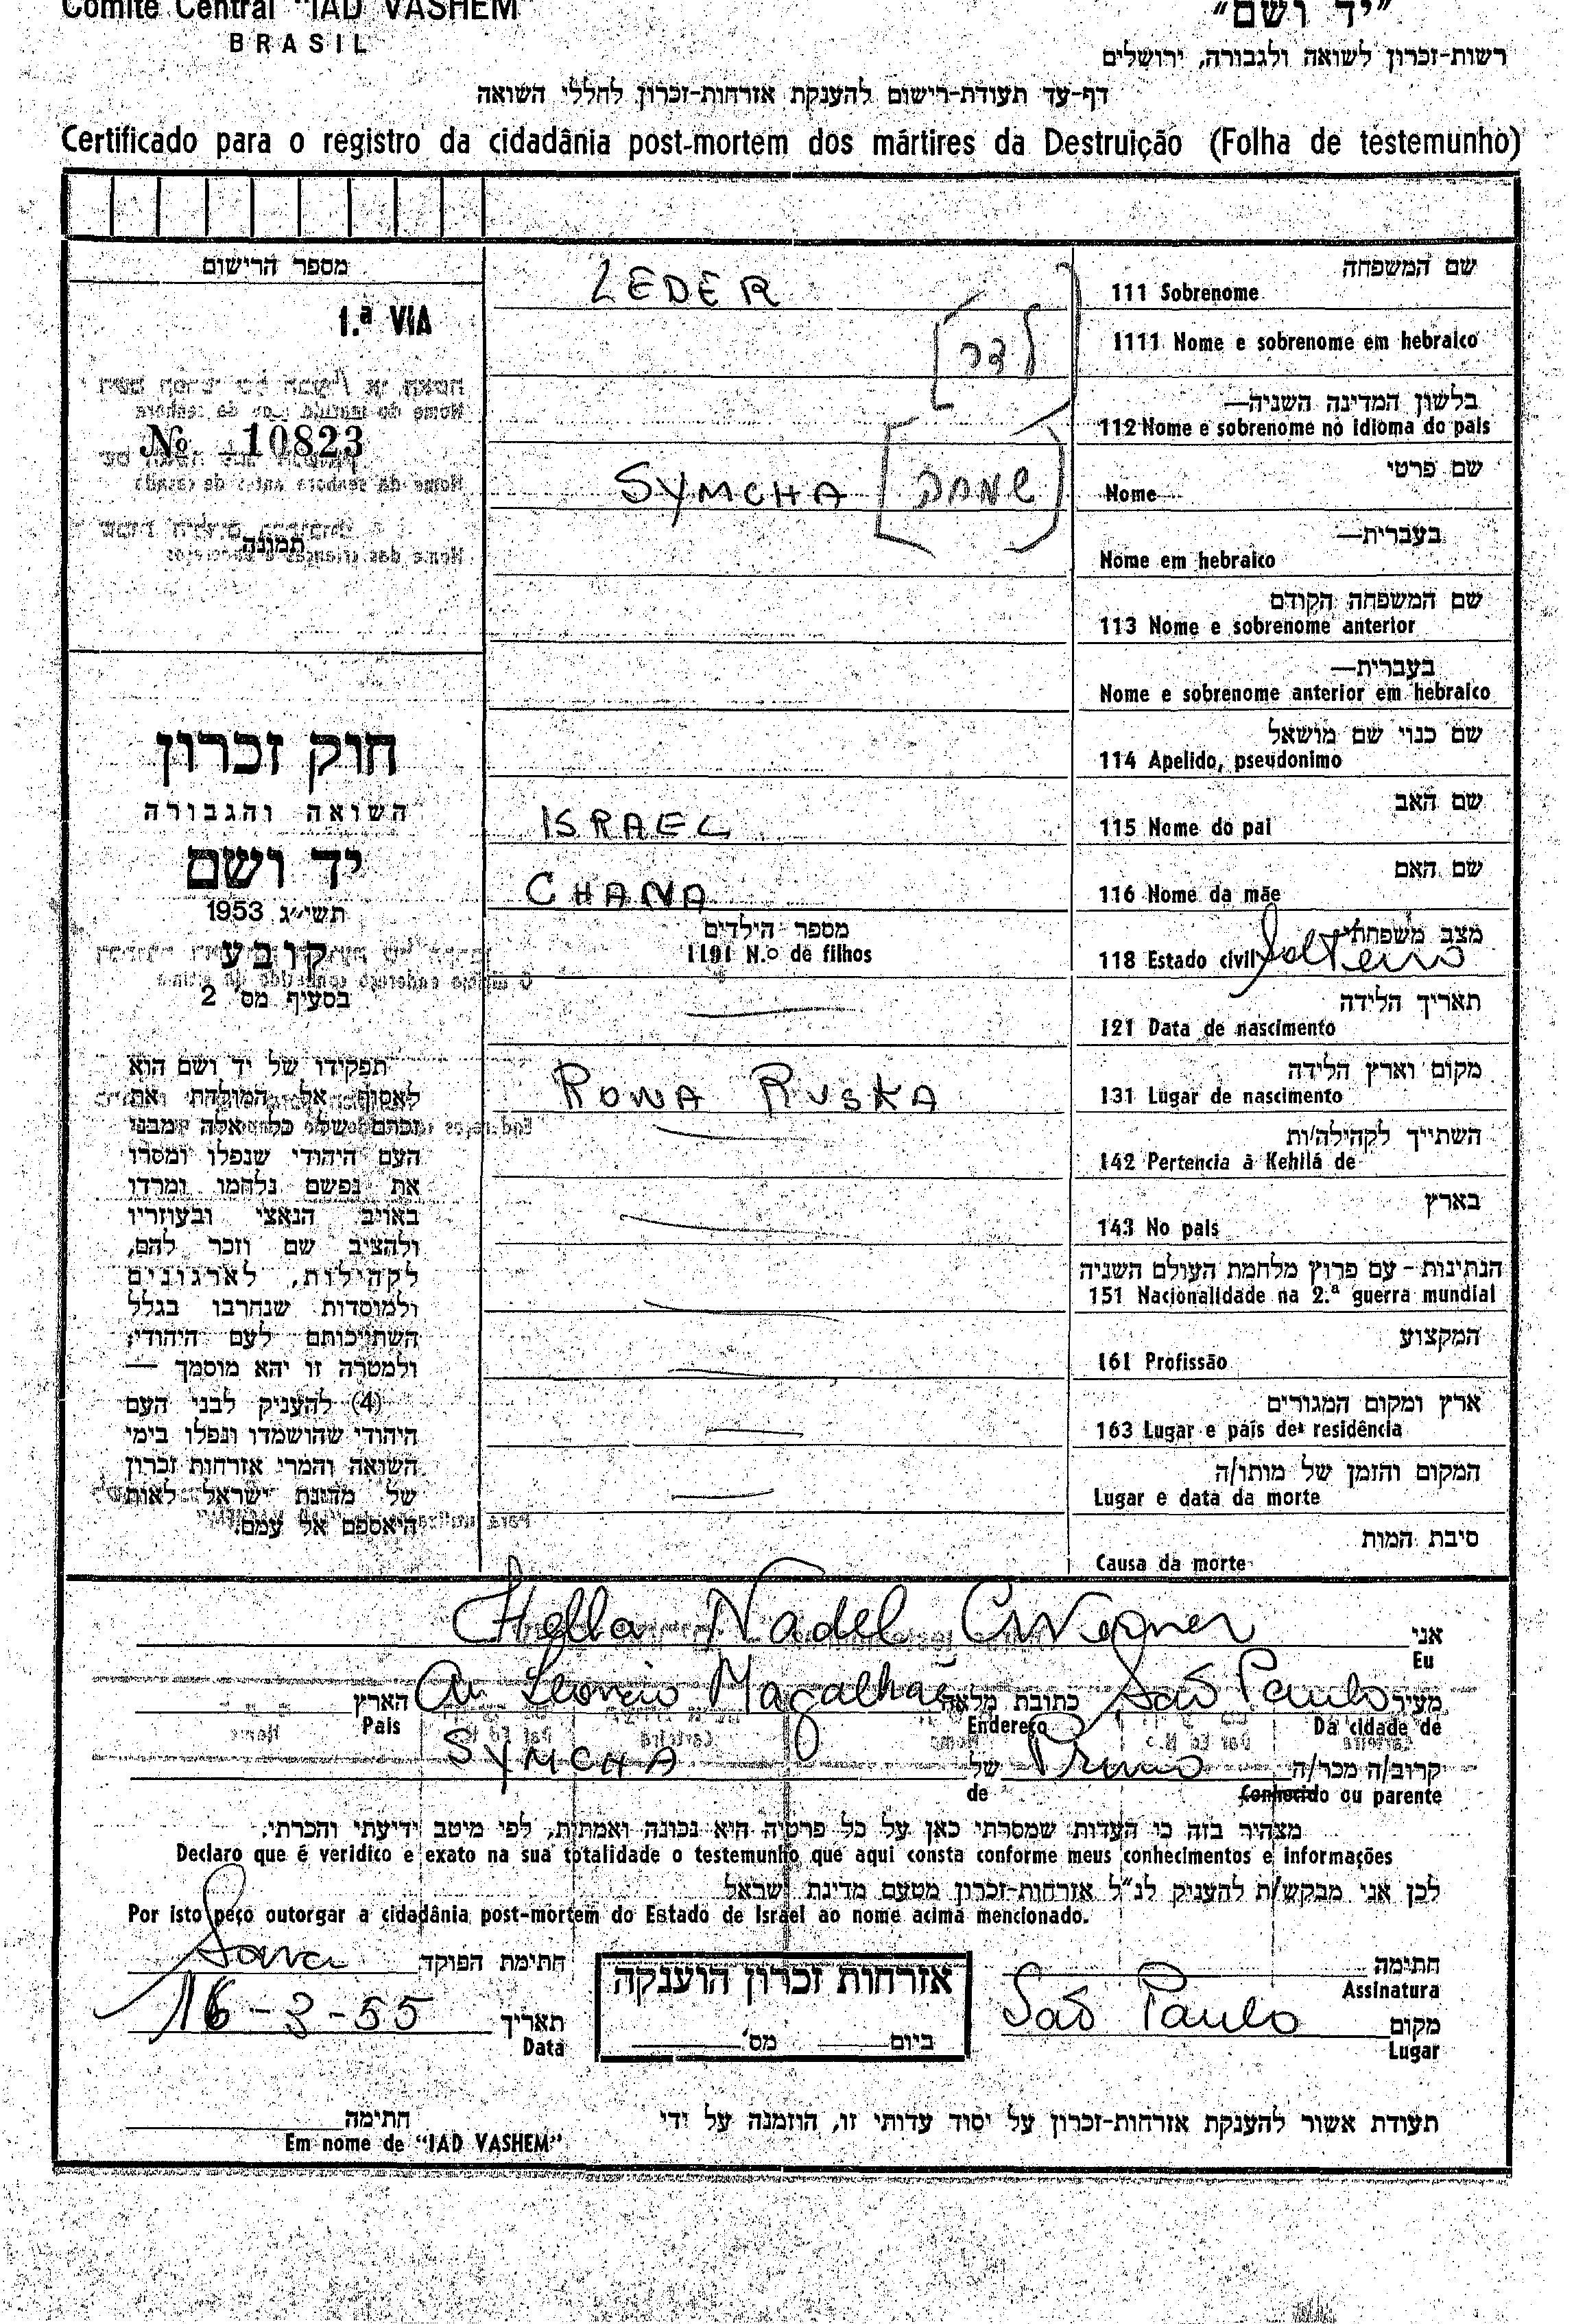 Comité Central "IAD VASHEM"
BRASIL
"יד ושם"
רשות-זכרון לשואה ולגבורה, ירושלים
דף-עד תעודת-רישום להענקת אזרחות-זכרון לחללי השואה
Certificado para o registro da cidadânia post-mortem dos mártires da Destruição (Folha de testemunho)
מספר הרישום
1.ª VIA
№ 10823
תמונה
חוק זכרון
השואה והגבורה
יד ושם
תשי"ג 1953
קובע
בסעיף מס' 2
תפקידו של יד ושם הוא
לאסוף אל המולדת את
זכרם של כל אלה מבני
העם היהודי שנפלו ומסרו
את נפשם נלחמו ומרדו
באויב הנאצי ובעוזריו
ולהציב שם וזכר להם,
לקהילות, לארגונים
ולמוסדות שנחרבו בגלל
השתייכותם לעם היהודי;
ולמטרה זו יהא מוסמך —
(4) להעניק לבני העם
היהודי שהושמדו ונפלו בימי
השואה והמרי אזרחות זכרון
של מדינת ישראל לאות
היאספם אל עמם.
שם המשפחה
111 Sobrenome LEDER
1111 Nome e sobrenome em hebraico [לדר]
בלשון המדינה השניה—
112 Nome e sobrenome no idioma do pais
שם פרטי
Nome SYMCHA [שמחה]
בעברית—
Nome em hebraico
שם המשפחה הקודם
113 Nome e sobrenome anterior
בעברית—
Nome e sobrenome anterior em hebraico
שם כנוי שם מושאל
114 Apelido, pseudonimo
שם האב
115 Nome do pai ISRAEL
שם האם
116 Nome da mãe CHANA
מצב משפחתי
118 Estado civil Solteiro
מספר הילדים
1191 N.º de filhos
תאריך הלידה
121 Data de nascimento
מקום וארץ הלידה
131 Lugar de nascimento ROWA RUSKA
השתייך לקהילה/ות
142 Pertencia à Kehilá de
בארץ
143 No pais
הנתינות - עם פרוץ מלחמת העולם השניה
151 Nacionalidade na 2.ª guerra mundial
המקצוע
161 Profissão
ארץ ומקום המגורים
163 Lugar e páis de residência
המקום והזמן של מותו/ה
Lugar e data da morte
סיבת המות
Causa da morte
אני
Eu Hella Nadel
מעיר São Paulo כתובת מלאה Leoncio Magalhães הארץ
Da cidade de Endereço Pais
קרוב/ה מכר/ה Primo של SYMCHA
Conhecido ou parente de
מצהיר בזה כי העדות שמסרתי כאן על כל פרטיה היא נכונה ואמתית, לפי מיטב ידיעתי והכרתי.
Declaro que é veridico e exato na sua totalidade o testemunho que aqui consta conforme meus conhecimentos e informações
לכן אני מבקש/ת להעניק לנ"ל אזרחות-זכרון מטעם מדינת ישראל
Por isto peço outorgar a cidadânia post-mortem do Estado de Israel ao nome acima mencionado.
חתימה
Assinatura
חתימת הפוקד Sara
אזרחות זכרון הוענקה
ביום מס'
מקום São Paulo
Lugar
תאריך 16-3-55
Data
תעודת אשור להענקת אזרחות-זכרון על יסוד עדותי זו, הוזמנה על ידי
חתימה
Em nome de "IAD VASHEM"